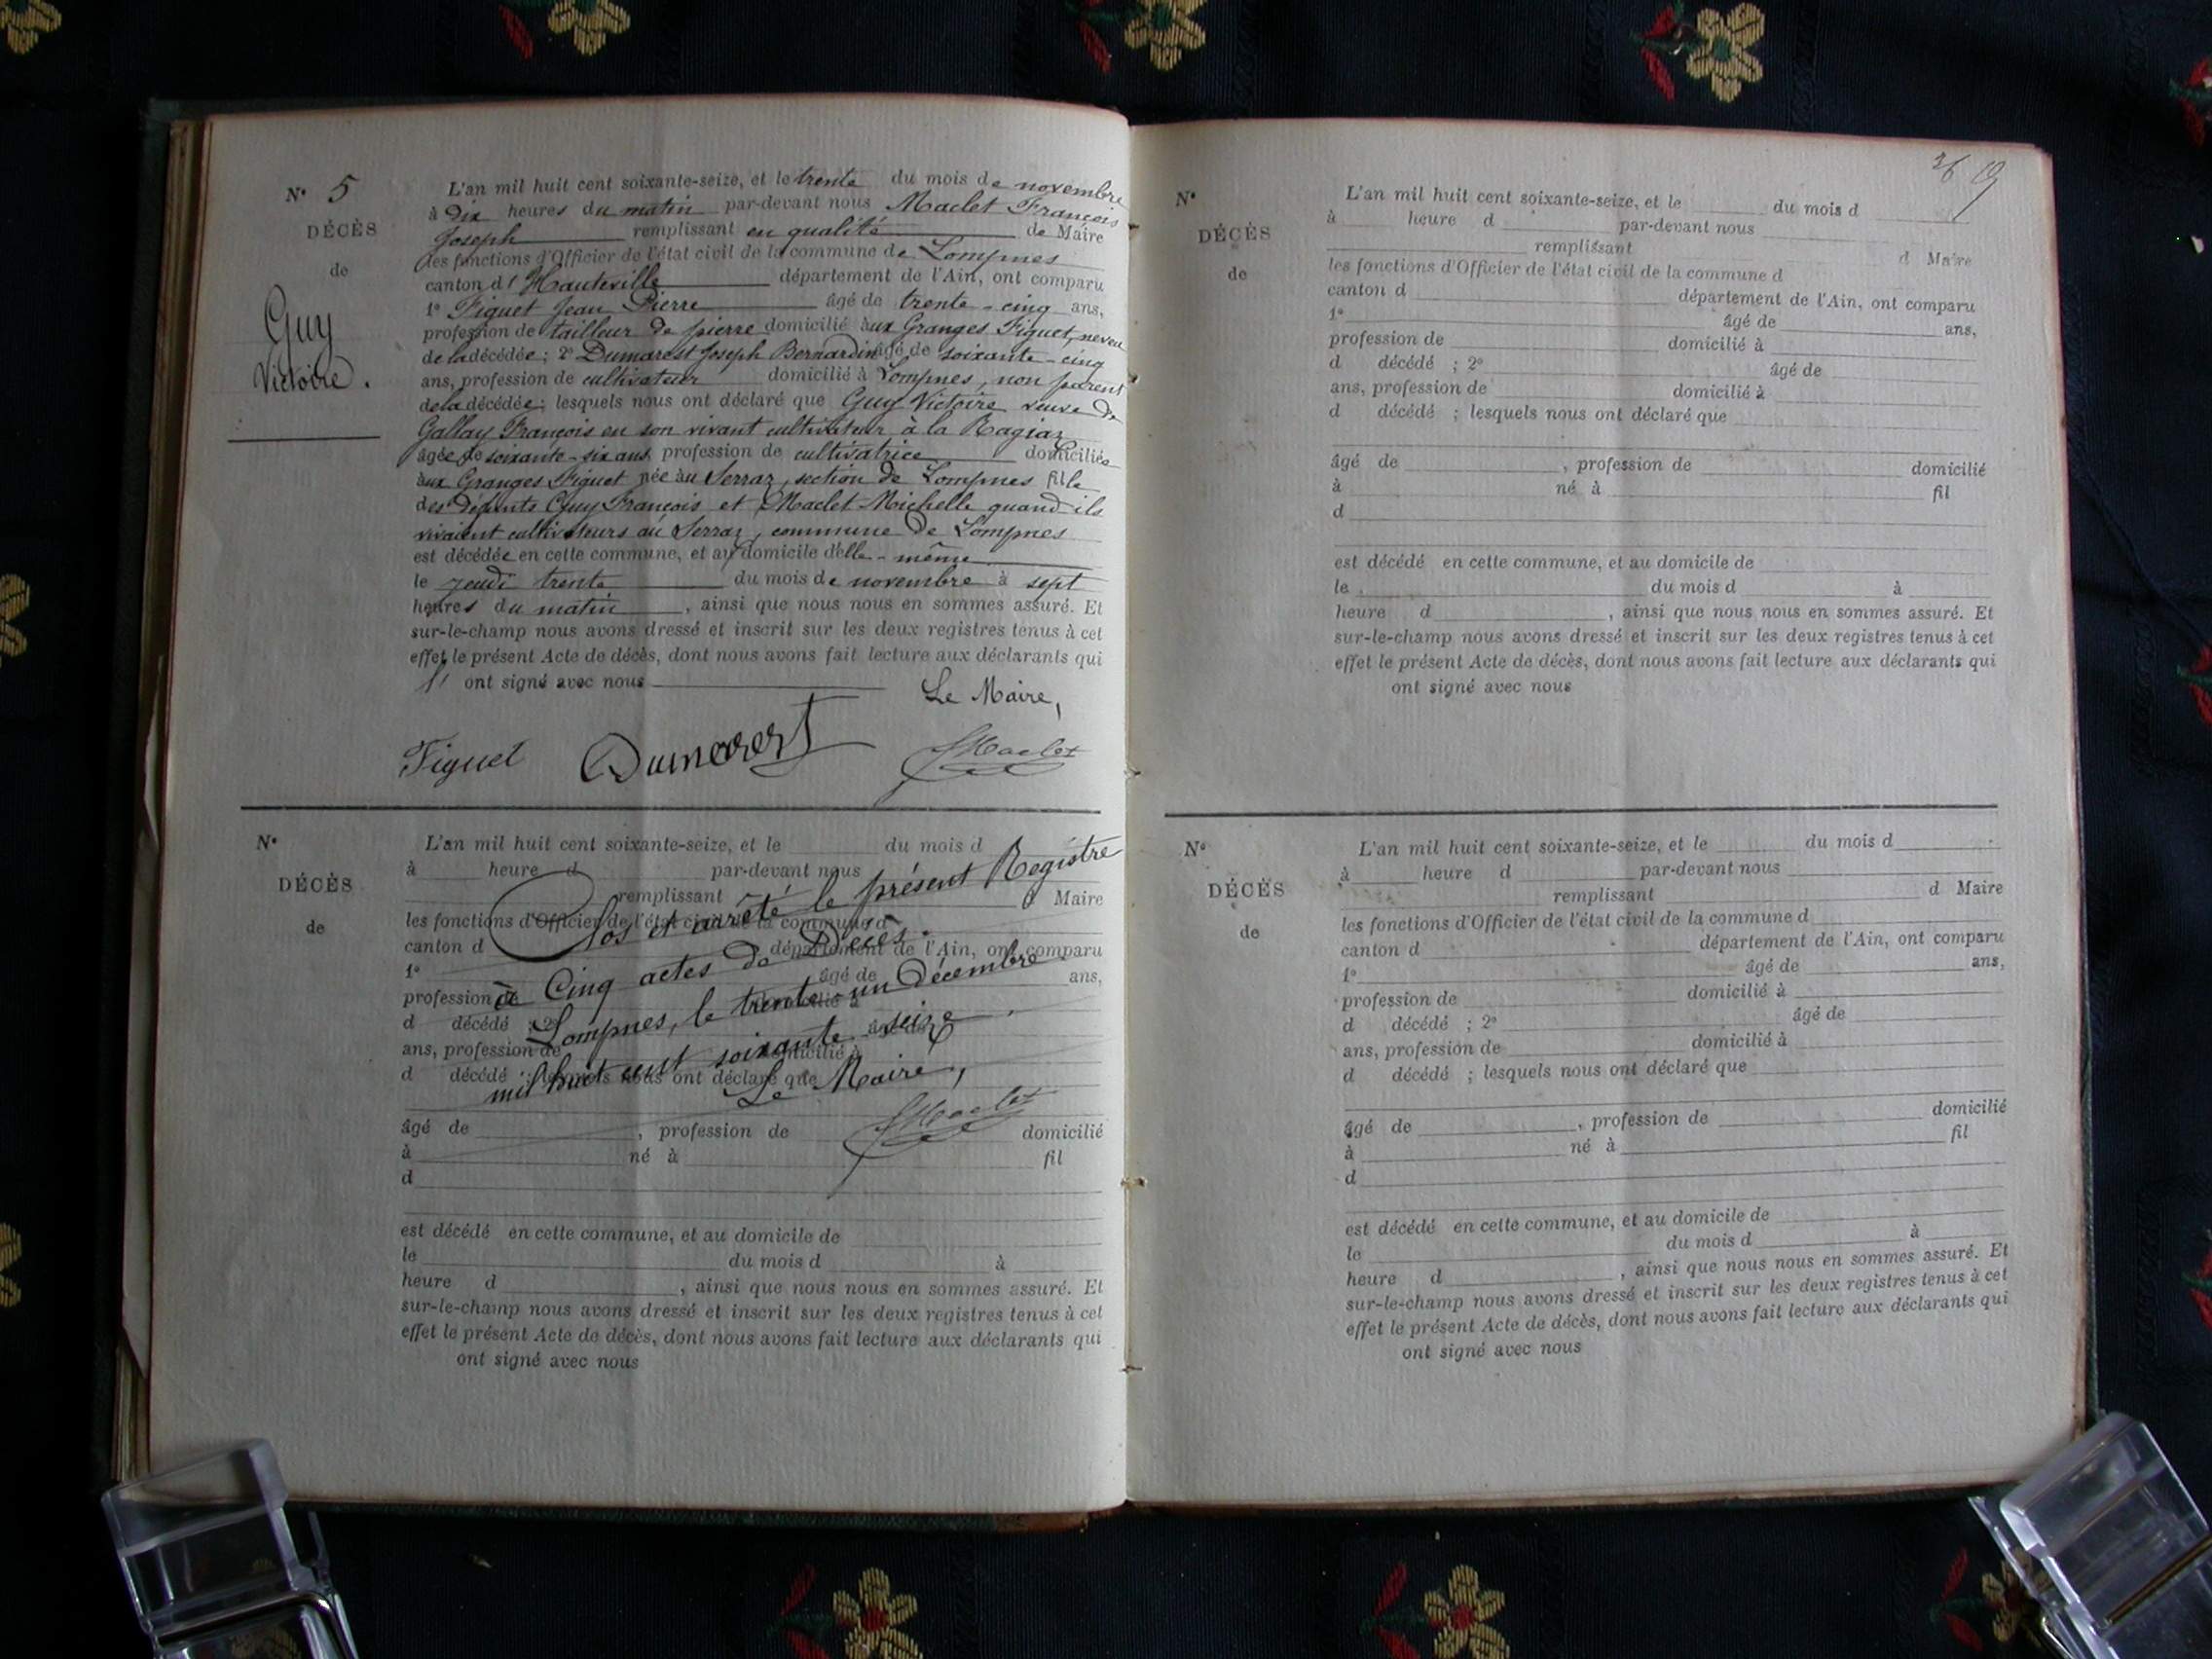 N° 5
DÉCÈS
de
Guy
Victoire.
L'an mil huit cent soixante-seize, et le trente du mois de novembre
à dix heures du matin par-devant nous Maclet François
Joseph remplissant en qualité de Maire
les fonctions d'Officier de l'état civil de la commune de Lompnes
canton d'Hauteville département de l'Ain, ont comparu
1° Figuet Jean Pierre âgé de trente-cinq ans,
profession de tailleur de pierre domicilié aux Granges Figuet, neveu
de la décédée ; 2° Dumarest Joseph Bernardin âgé de soixante-cinq
ans, profession de cultivateur domicilié à Lompnes, non parent
de la décédée ; lesquels nous ont déclaré que Guy Victoire veuve de
Gallay François en son vivant cultivateur à la Ragiaz
âgée de soixante-six ans, profession de cultivatrice domiciliée
aux Granges Figuet née au Serraz, section de Lompnes fille
des défunts Guy François et Maclet Michelle quand ils
vivaient cultivateurs au Serraz, commune de Lompnes
est décédée en cette commune, et au domicile d'elle-même
le jeudi trente du mois de novembre à sept
heures du matin, ainsi que nous nous en sommes assuré. Et
sur-le-champ nous avons dressé et inscrit sur les deux registres tenus à cet
effet le présent Acte de décès, dont nous avons fait lecture aux déclarants qui
l' ont signé avec nous
Le Maire,
Figuet Dumarest Maclet
N°
DÉCÈS
de
L'an mil huit cent soixante-seize, et le du mois d
à heure d par-devant nous
remplissant d Maire
les fonctions d'Officier de l'état civil de la commune d
canton d département de l'Ain, ont comparu
1° âgé de ans,
profession de domicilié à
d décédé ; 2° âgé de
ans, profession de domicilié à
d décédé ; lesquels nous ont déclaré que
Clos et arrêté le présent Registre
à Cinq actes de Décès.
Lompnes, le trente-un Décembre
mil huit cent soixante-seize.
Le Maire,
Maclet
âgé de , profession de domicilié
à né à fil
d
est décédé en cette commune, et au domicile de
le du mois d à
heure d , ainsi que nous nous en sommes assuré. Et
sur-le-champ nous avons dressé et inscrit sur les deux registres tenus à cet
effet le présent Acte de décès, dont nous avons fait lecture aux déclarants qui
ont signé avec nous
N°
DÉCÈS
de
L'an mil huit cent soixante-seize, et le du mois d
à heure d par-devant nous
remplissant d Maire
les fonctions d'Officier de l'état civil de la commune d
canton d département de l'Ain, ont comparu
1° âgé de ans,
profession de domicilié à
d décédé ; 2° âgé de
ans, profession de domicilié à
d décédé ; lesquels nous ont déclaré que
âgé de , profession de domicilié
à né à fil
d
est décédé en cette commune, et au domicile de
le du mois d à
heure d , ainsi que nous nous en sommes assuré. Et
sur-le-champ nous avons dressé et inscrit sur les deux registres tenus à cet
effet le présent Acte de décès, dont nous avons fait lecture aux déclarants qui
ont signé avec nous
N°
DÉCÈS
de
L'an mil huit cent soixante-seize, et le du mois d
à heure d par-devant nous
remplissant d Maire
les fonctions d'Officier de l'état civil de la commune d
canton d département de l'Ain, ont comparu
1° âgé de ans,
profession de domicilié à
d décédé ; 2° âgé de
ans, profession de domicilié à
d décédé ; lesquels nous ont déclaré que
âgé de , profession de domicilié
à né à fil
d
est décédé en cette commune, et au domicile de
le du mois d à
heure d , ainsi que nous nous en sommes assuré. Et
sur-le-champ nous avons dressé et inscrit sur les deux registres tenus à cet
effet le présent Acte de décès, dont nous avons fait lecture aux déclarants qui
ont signé avec nous